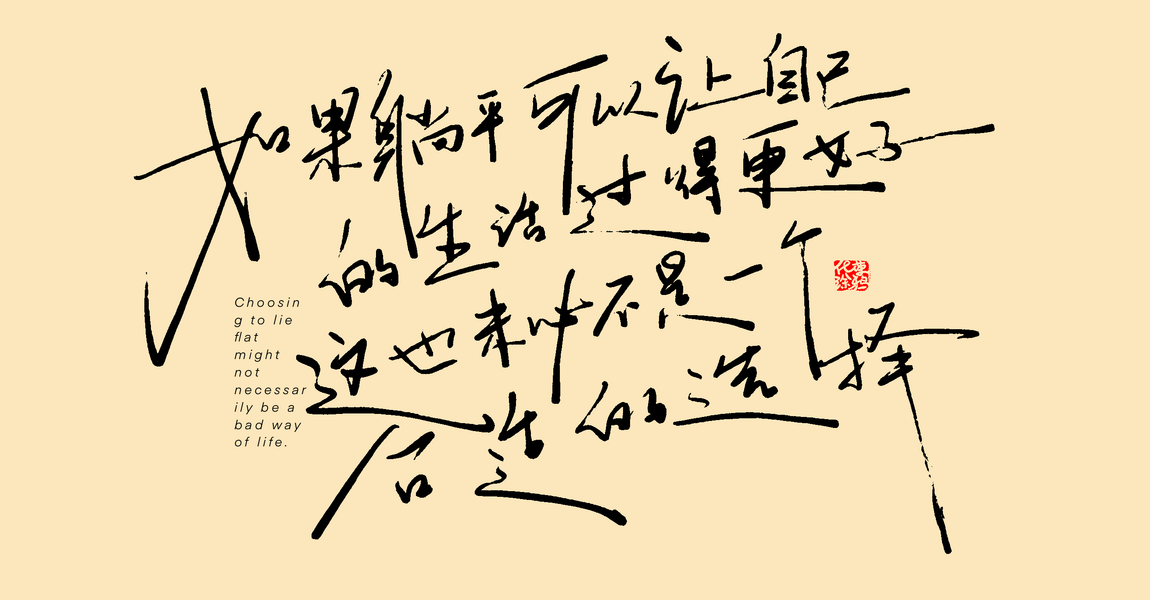 如果躺平可以让自己
的生活过得更好
这也未必不是一个
合适的选择
Choosin
g to lie
flat
might
not
necessar
ily be a
bad way
of life.